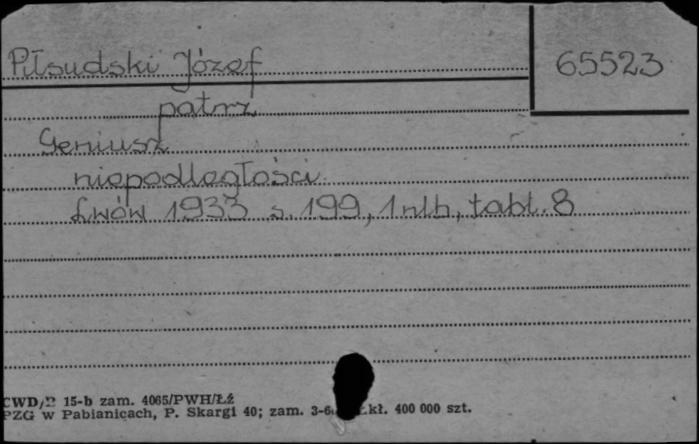 Piłsudski Józef
65523
patrz
Geniusz
niepodległości
Lwów 1933 s. 199, 1 nlb, tabl. 8
CWD/ 15-b zam. 4065/PWH/Łź
PZG w Pabianicach, P. Skargi 40; zam. kł. 400 000 szt.